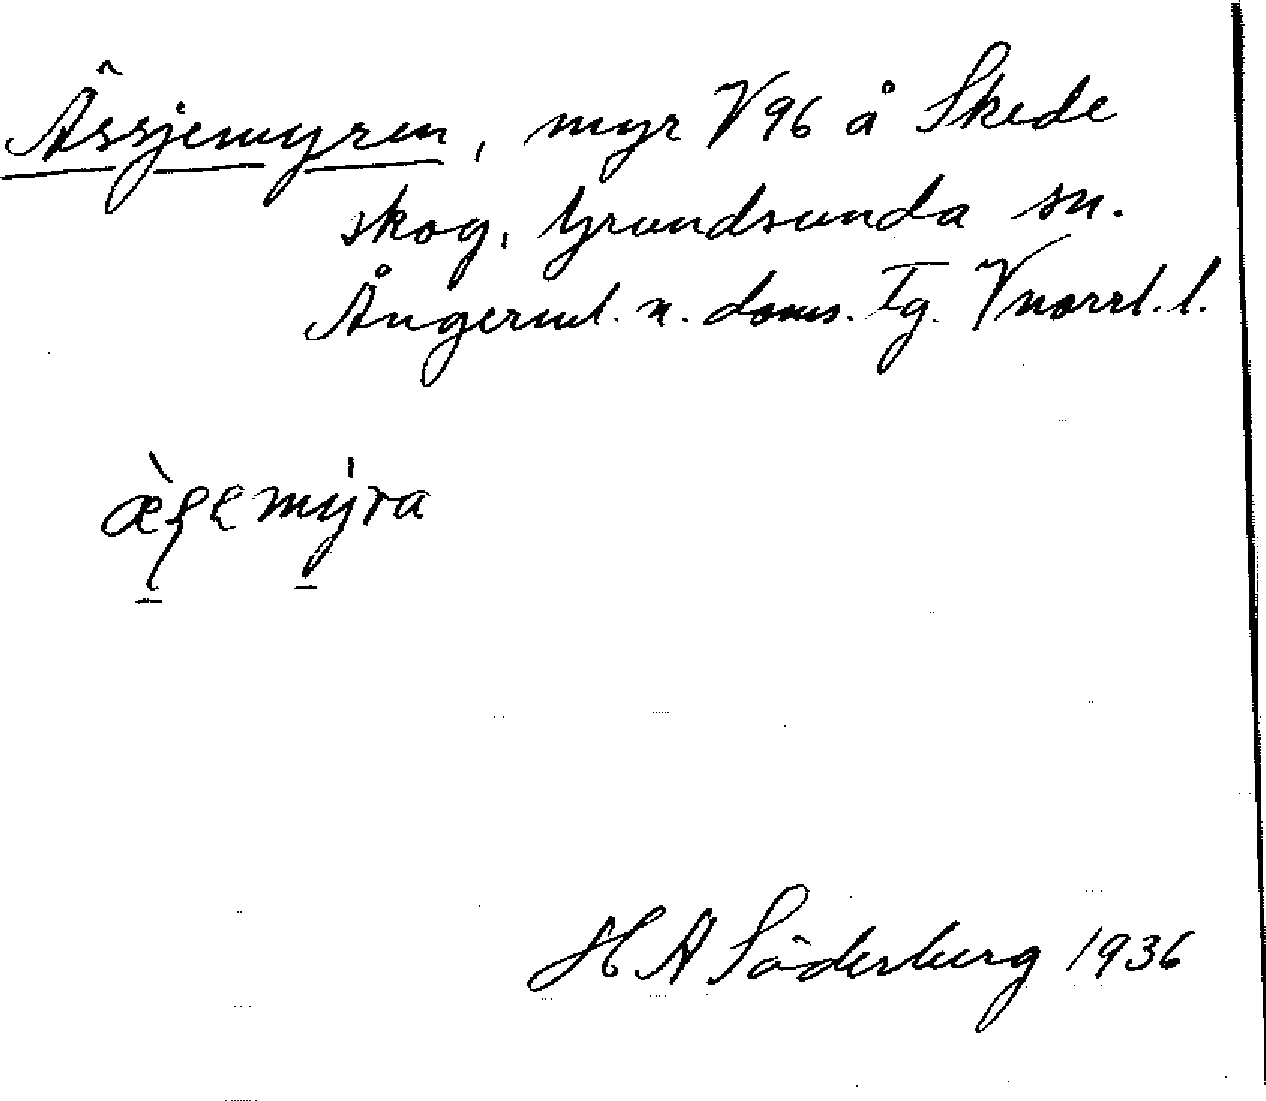 Ässjemyren, myr V 96 å Skede
skog, Grundsunda sn.
Ångerml. n. doms. Tg. Vnorrl. l.
æ̀ʂɛmy̍ra
H A Söderberg 1936